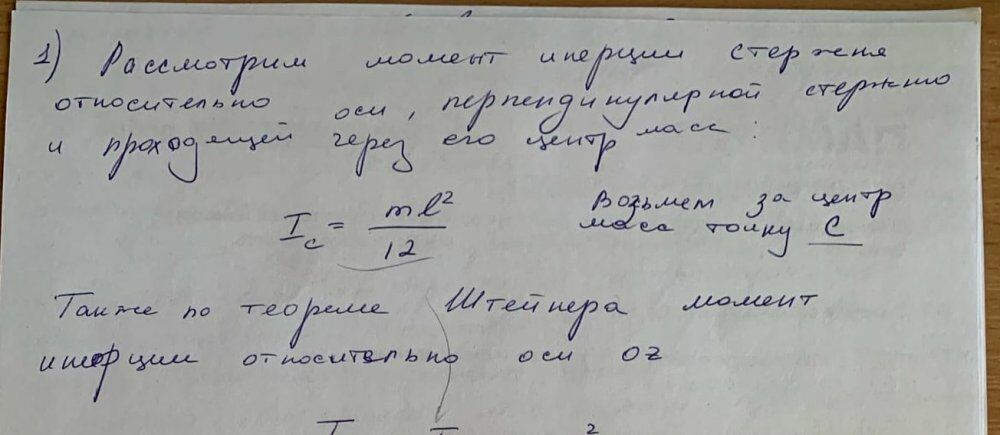 1) Рассмотрим момент инерции стержня
относительно оси, перпендикулярной стержню
и проходящей через его центр масс:
I_c = ml²/12
Возьмем за центр
масс точку C
Также по теореме Штейнера момент
инерции относительно оси OZ